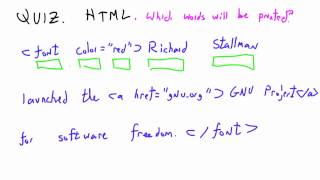 QUIZ. HTML. Which words will be printed?
<font color="red"> Richard Stallman
launched the <a href="gnu.org"> GNU Project</a>
for software freedom. </font>